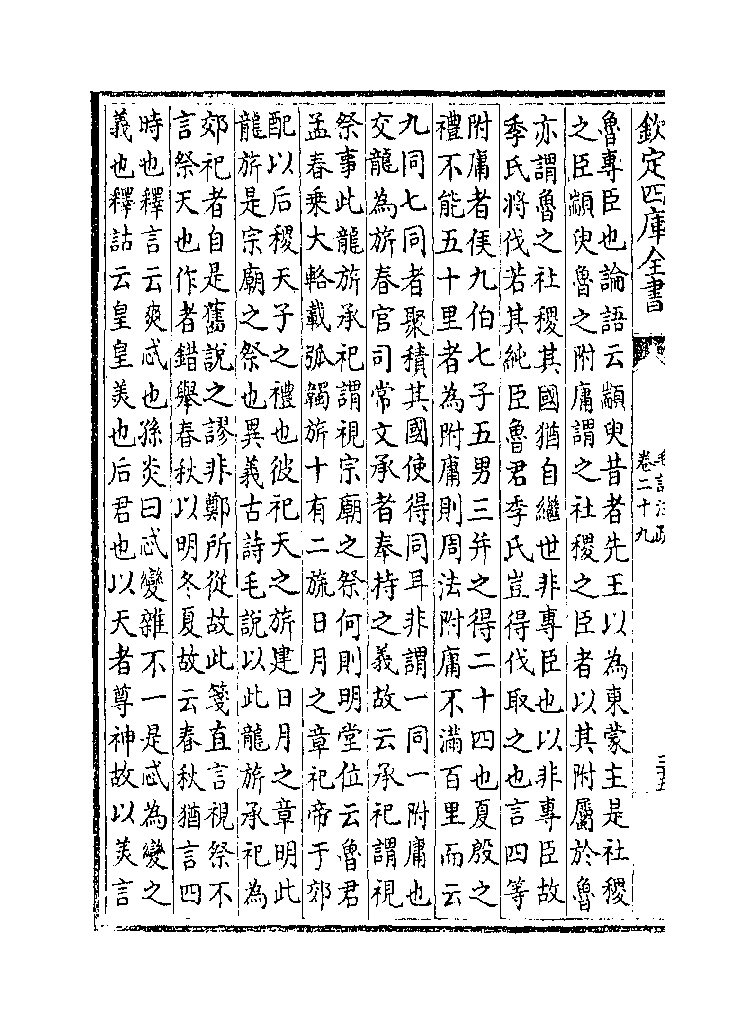 欽定四庫全書
毛詩注疏
卷二十九
魯專臣也論語云顓臾昔者先王以為東蒙主是社稷
之臣顓臾魯之附庸謂之社稷之臣者以其附屬於魯
亦謂魯之社稷其國猶自繼世非專臣也以非專臣故
季氏將伐若其純臣魯君季氏豈得伐取之也言四等
附庸者侯九伯七子五男三并之得二十四也夏殷之
禮不能五十里者為附庸則周法附庸不滿百里而云
九同七同者聚積其國使得同耳非謂一同一附庸也
交龍為旂春官司常文承者奉持之義故云承祀謂視
祭事此龍旂承祀謂視宗廟之祭何則明堂位云魯君
孟春乘大輅載弧韣旂十有二旒日月之章祀帝于郊
配以后稷天子之禮也彼祀天之旂建日月之章明此
龍旂是宗廟之祭也異義古詩毛說以此龍旂承祀為
郊祀者自是舊說之謬非鄭所從故此箋直言視祭不
言祭天也作者錯舉春秋以明冬夏故云春秋猶言四
時也釋言云爽忒也孫炎曰忒變雜不一是忒為變之
義也釋詁云皇皇美也后君也以天者尊神故以美言